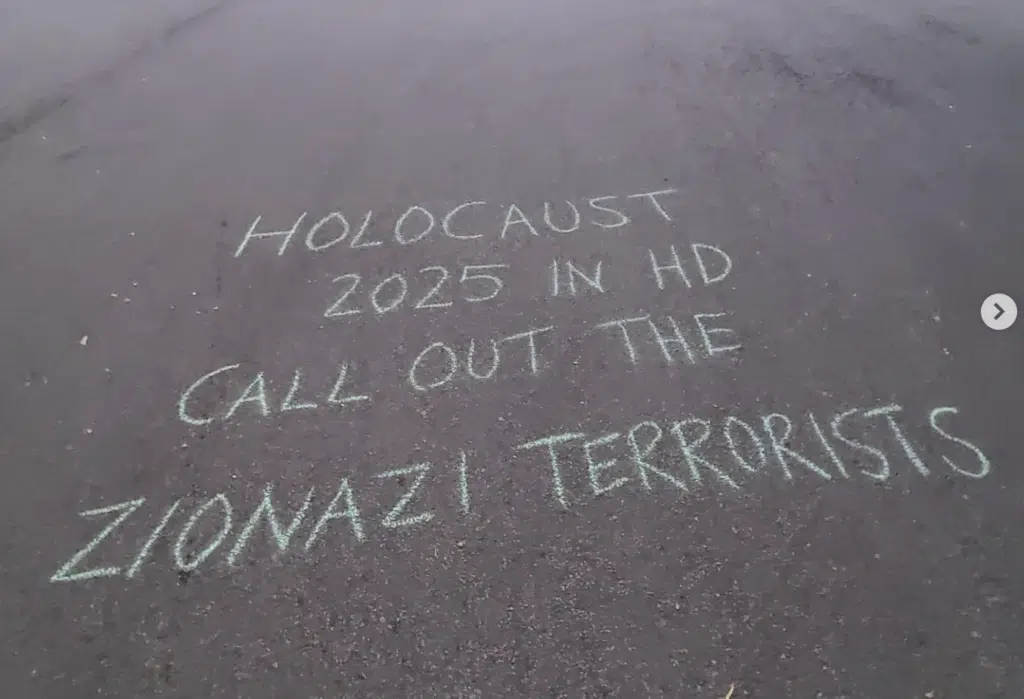 HOLOCAUST
2025 IN HD
CALL OUT THE
ZIONAZI TERRORISTS